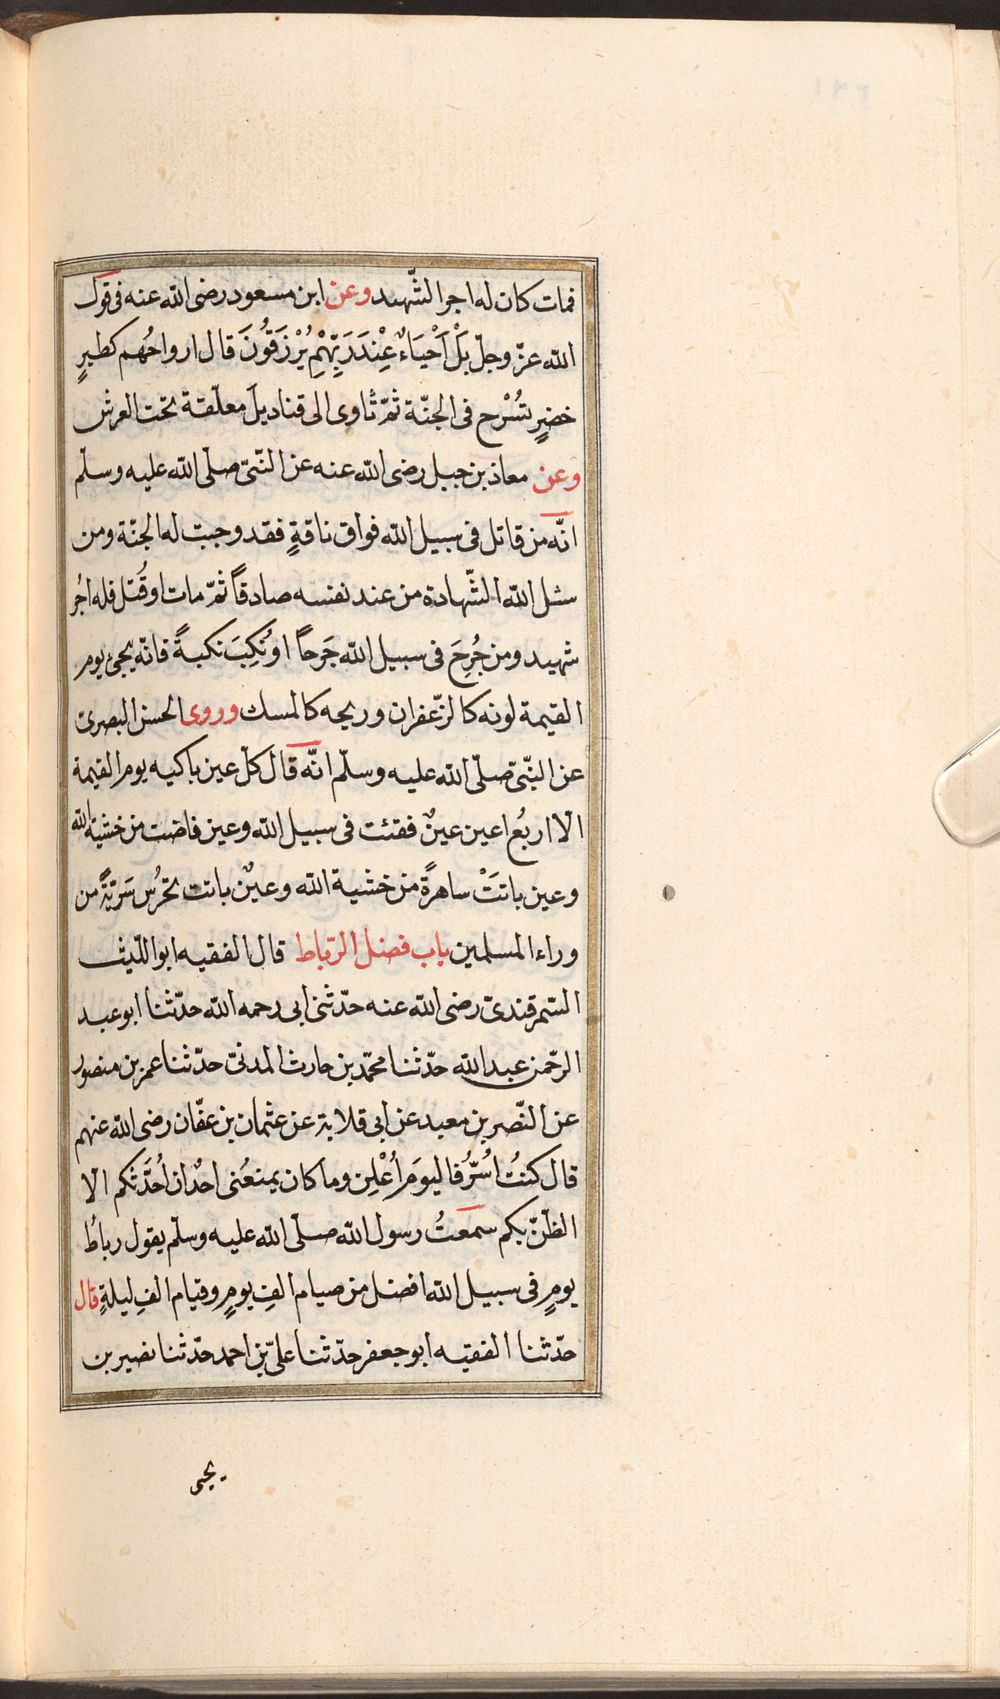 فمات كان له اجر الشّهيد وعن ابن مسعود رضى الله عنه فى قول
الله عزّ وجلّ بَلْ اَحْيَاءٌ عِنْدَ رَبِّهِمْ يُرْزَقُونَ قال ارواحُهم كطيرٍ
خضرٍ تسْرح فى الجنّة ثمّ تأوى الى قناديلَ معلّقة تحت العرش
وعن معاذ بن جبل رضى الله عنه عن النّبىّ صلّى الله عليه وسلّم
انّه من قاتل فى سبيل الله فواق ناقةٍ فقد وجبت له الجنّة ومن
سئل الله الشّهادة من عند نفسه صادقاً ثمّ مات او قُتل فله اجُر
شهيد ومن جُرِحَ فى سبيل الله جَرحاً او نُكِبَ نكبةً فانّه يجئ يوم
القيمة لونه كالزّعفران وريحه كالمسك وروى الحسن البصرىّ
عن النبّى صلّى الله عليه وسلّم انّه قال كلّ عين باكيه يوم القيمة
الّا اربعُ اعين عينٌ فقئت فى سبيل الله وعين فاضت من خشية الله
وعين باتتَْ ساهرةً من خشية الله وعينٌ باتت تحرُس سَريّةً من
وراء المسلمين باب فضل الرّباط قال الفقيه ابو اللّيث
السّمرقندىّ رضى الله عنه حدّثنى ابى رحمه الله حدّثنا ابو عبد
الرّحمن عبد الله حدّثنا محمّد بن حارث المدنىّ حدّثنا عمر بن منصور
عن النّصر بن معبد عن ابى قلابة عن عثمان بن عفّان رضى الله عنهم
قال كنتُ اُسُرُّ فاليومَ اُعْلِن وما كان يمنعُنى احدٌ ان اُحدَّثكم الّا
الظنّ بكم سمعتُ رسول الله صلّى الله عليه وسلّم يقول رباطُ
يومٍ فى سبيل الله افضل من صيام الفِ يومٍ وقيام الفِ ليلةٍ قال
حدّثنا الفقيه ابو جعفر حدّثنا علىّ بن احمد حدّثنا نصير بن
يحيى